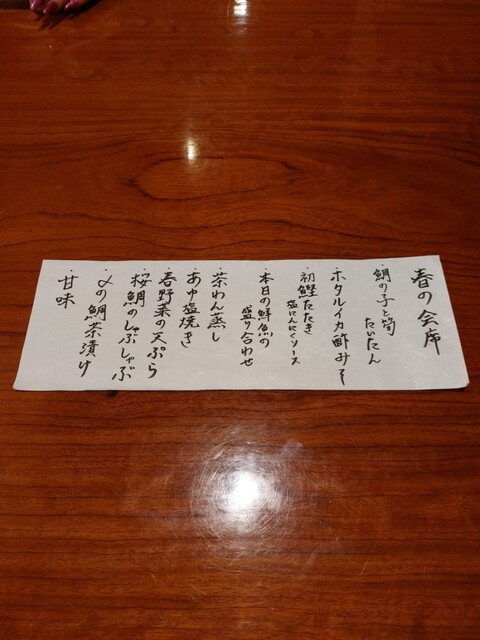 春の会席
・鯛の子と筍
たいたん
・ホタルイカ酢みそ
・初鰹たたき
塩にんにくソース
・本日の鮮魚の
盛り合わせ
・茶わん蒸し
・あゆ塩焼き
・春野菜の天ぷら
・桜鯛のしゃぶしゃぶ
・〆の鯛茶漬け
・甘味